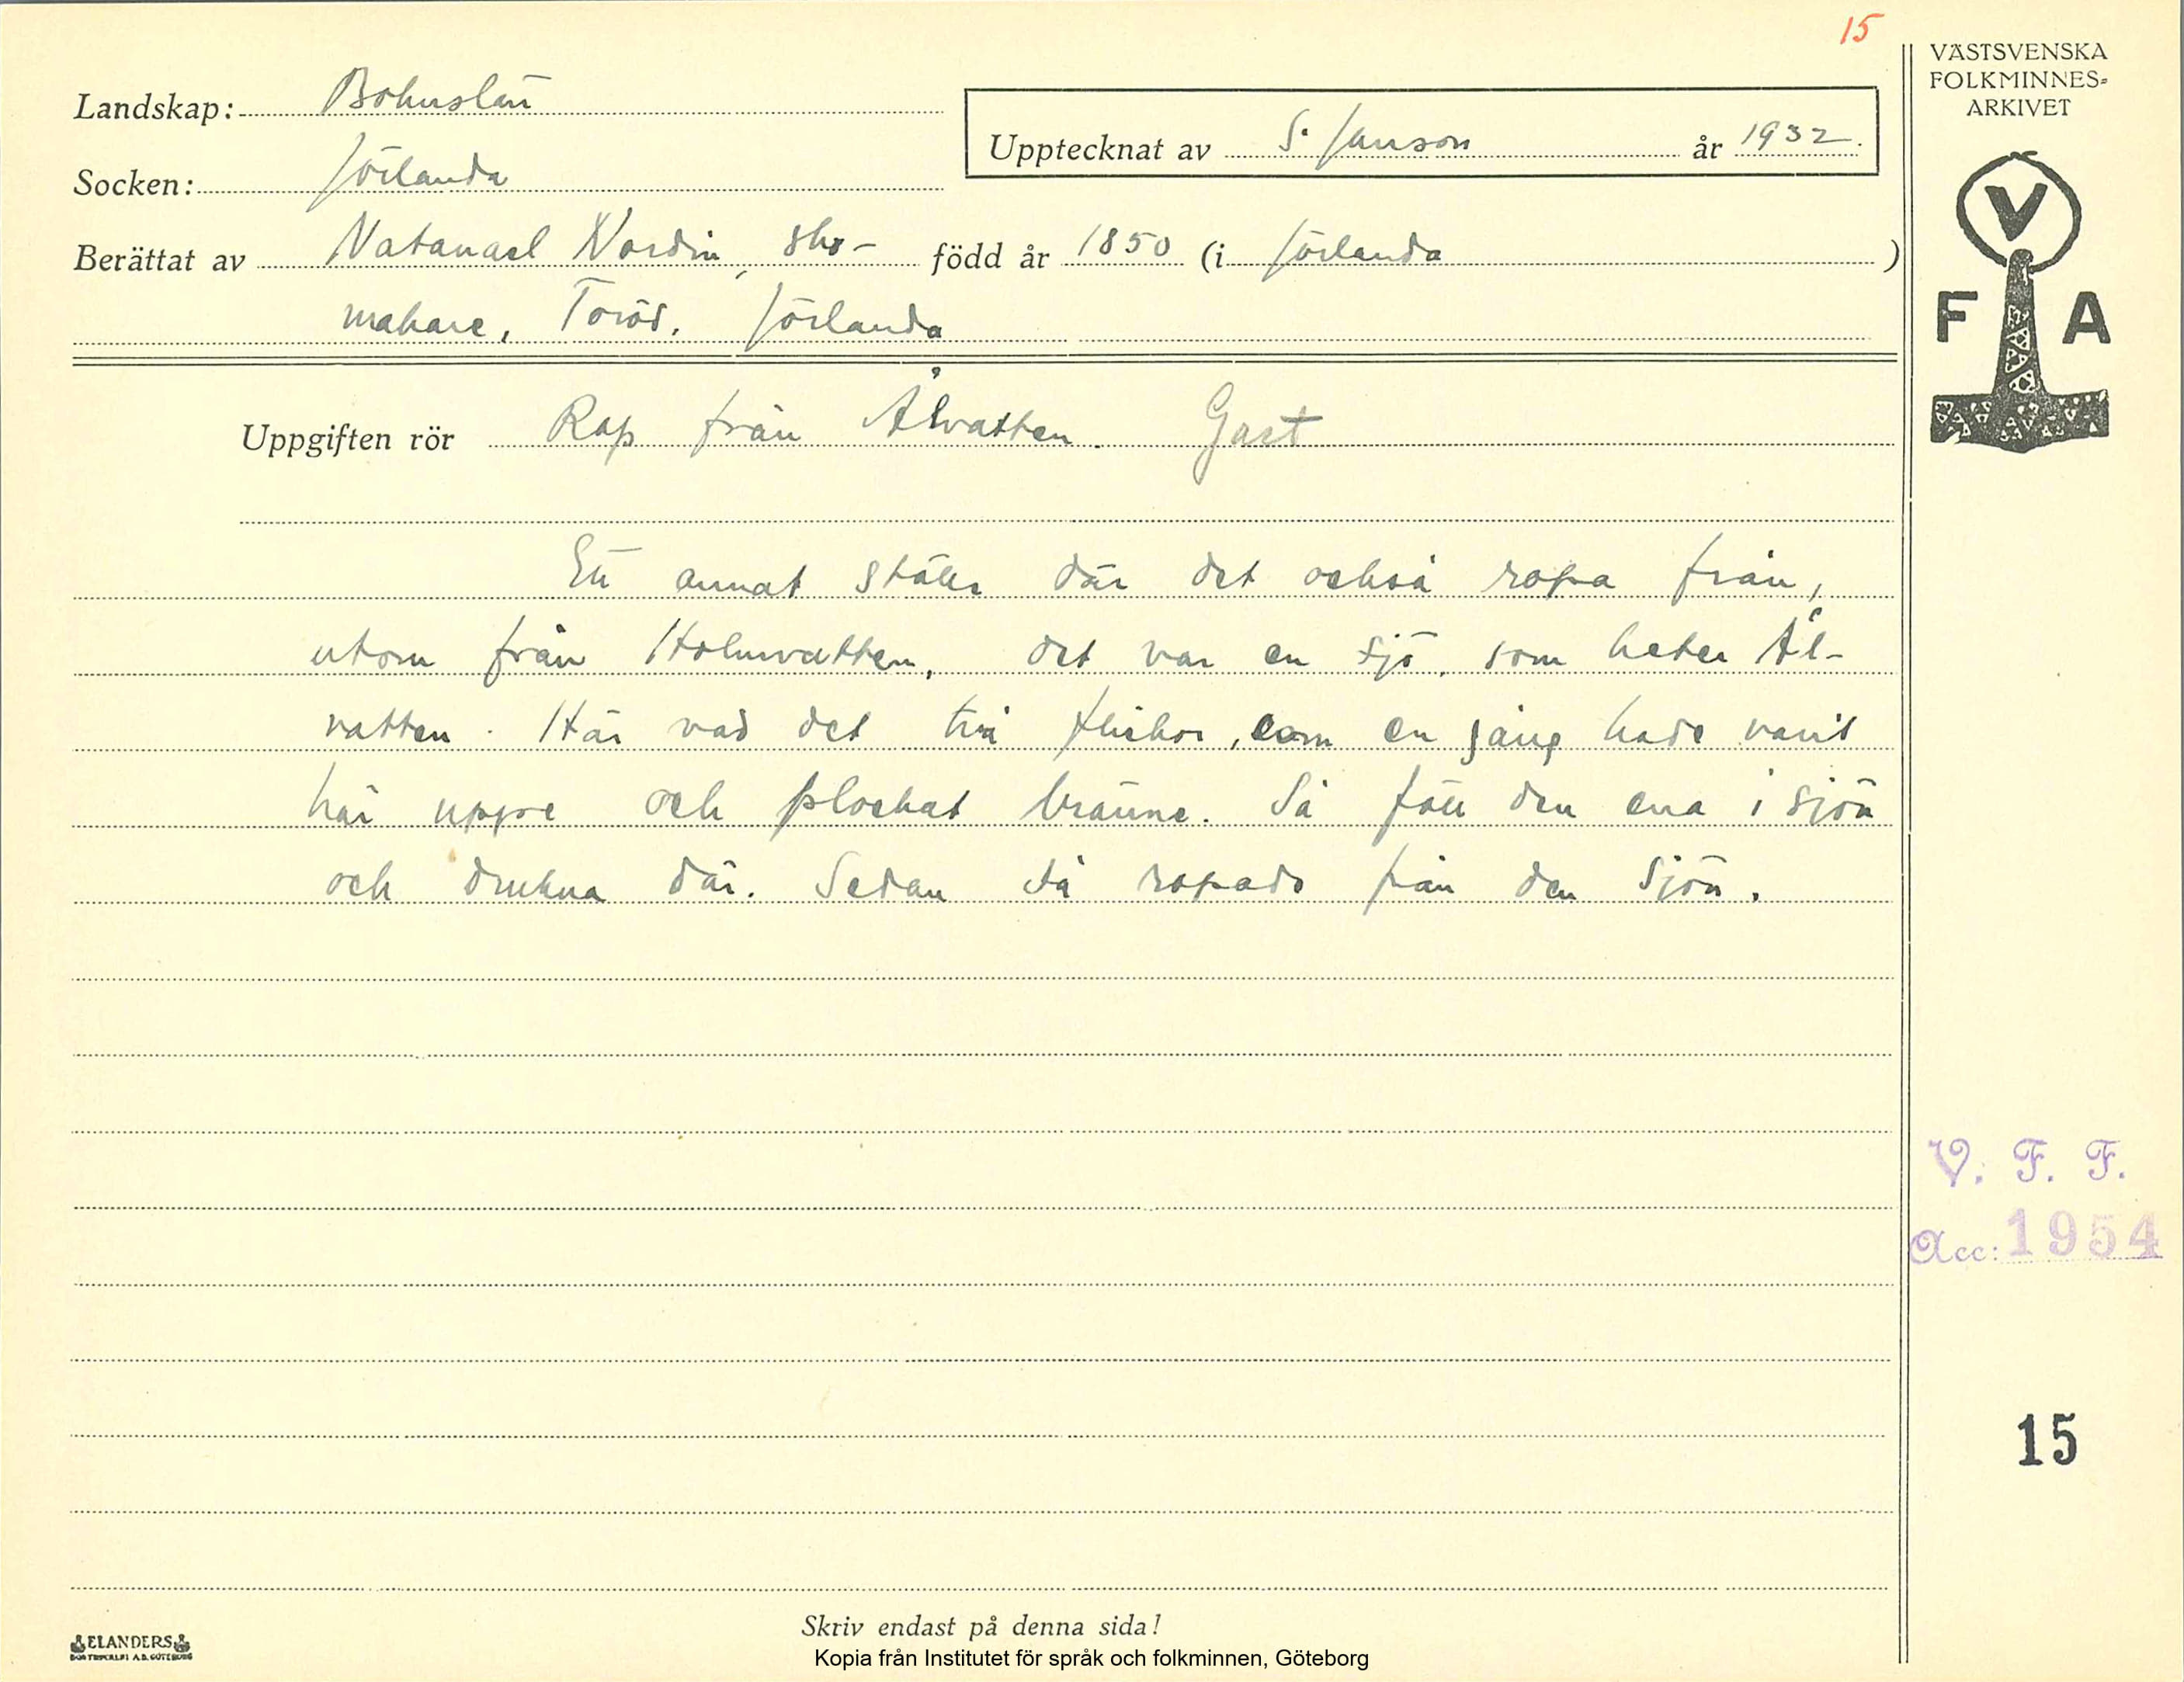 15
VÄSTSVENSKA
FOLKMINNES-
ARKIVET
Landskap: Bohuslän
Upptecknat av S. Janson år 1932.
Socken: Jörlanda
Berättat av Natanael Nordin, sko- född år 1850 (i Jörlanda )
makare, Toröd. Jörlanda
V
F A
Uppgiften rör Rop från Ålvatten. Gast
Ett annat ställe där det också ropa från,
utom från Holmvatten, det var en sjö, som heter Ål-
vatten. Här vad det två flickor, som en gång hade varit
här uppe och plockat bränne. Så föll den ena i sjön
och drukna där. Sedan så ropade från den sjön.
V. F. F.
Acc: 1954
15
Skriv endast på denna sida!
ELANDERS
Kopia från Institutet för språk och folkminnen, Göteborg